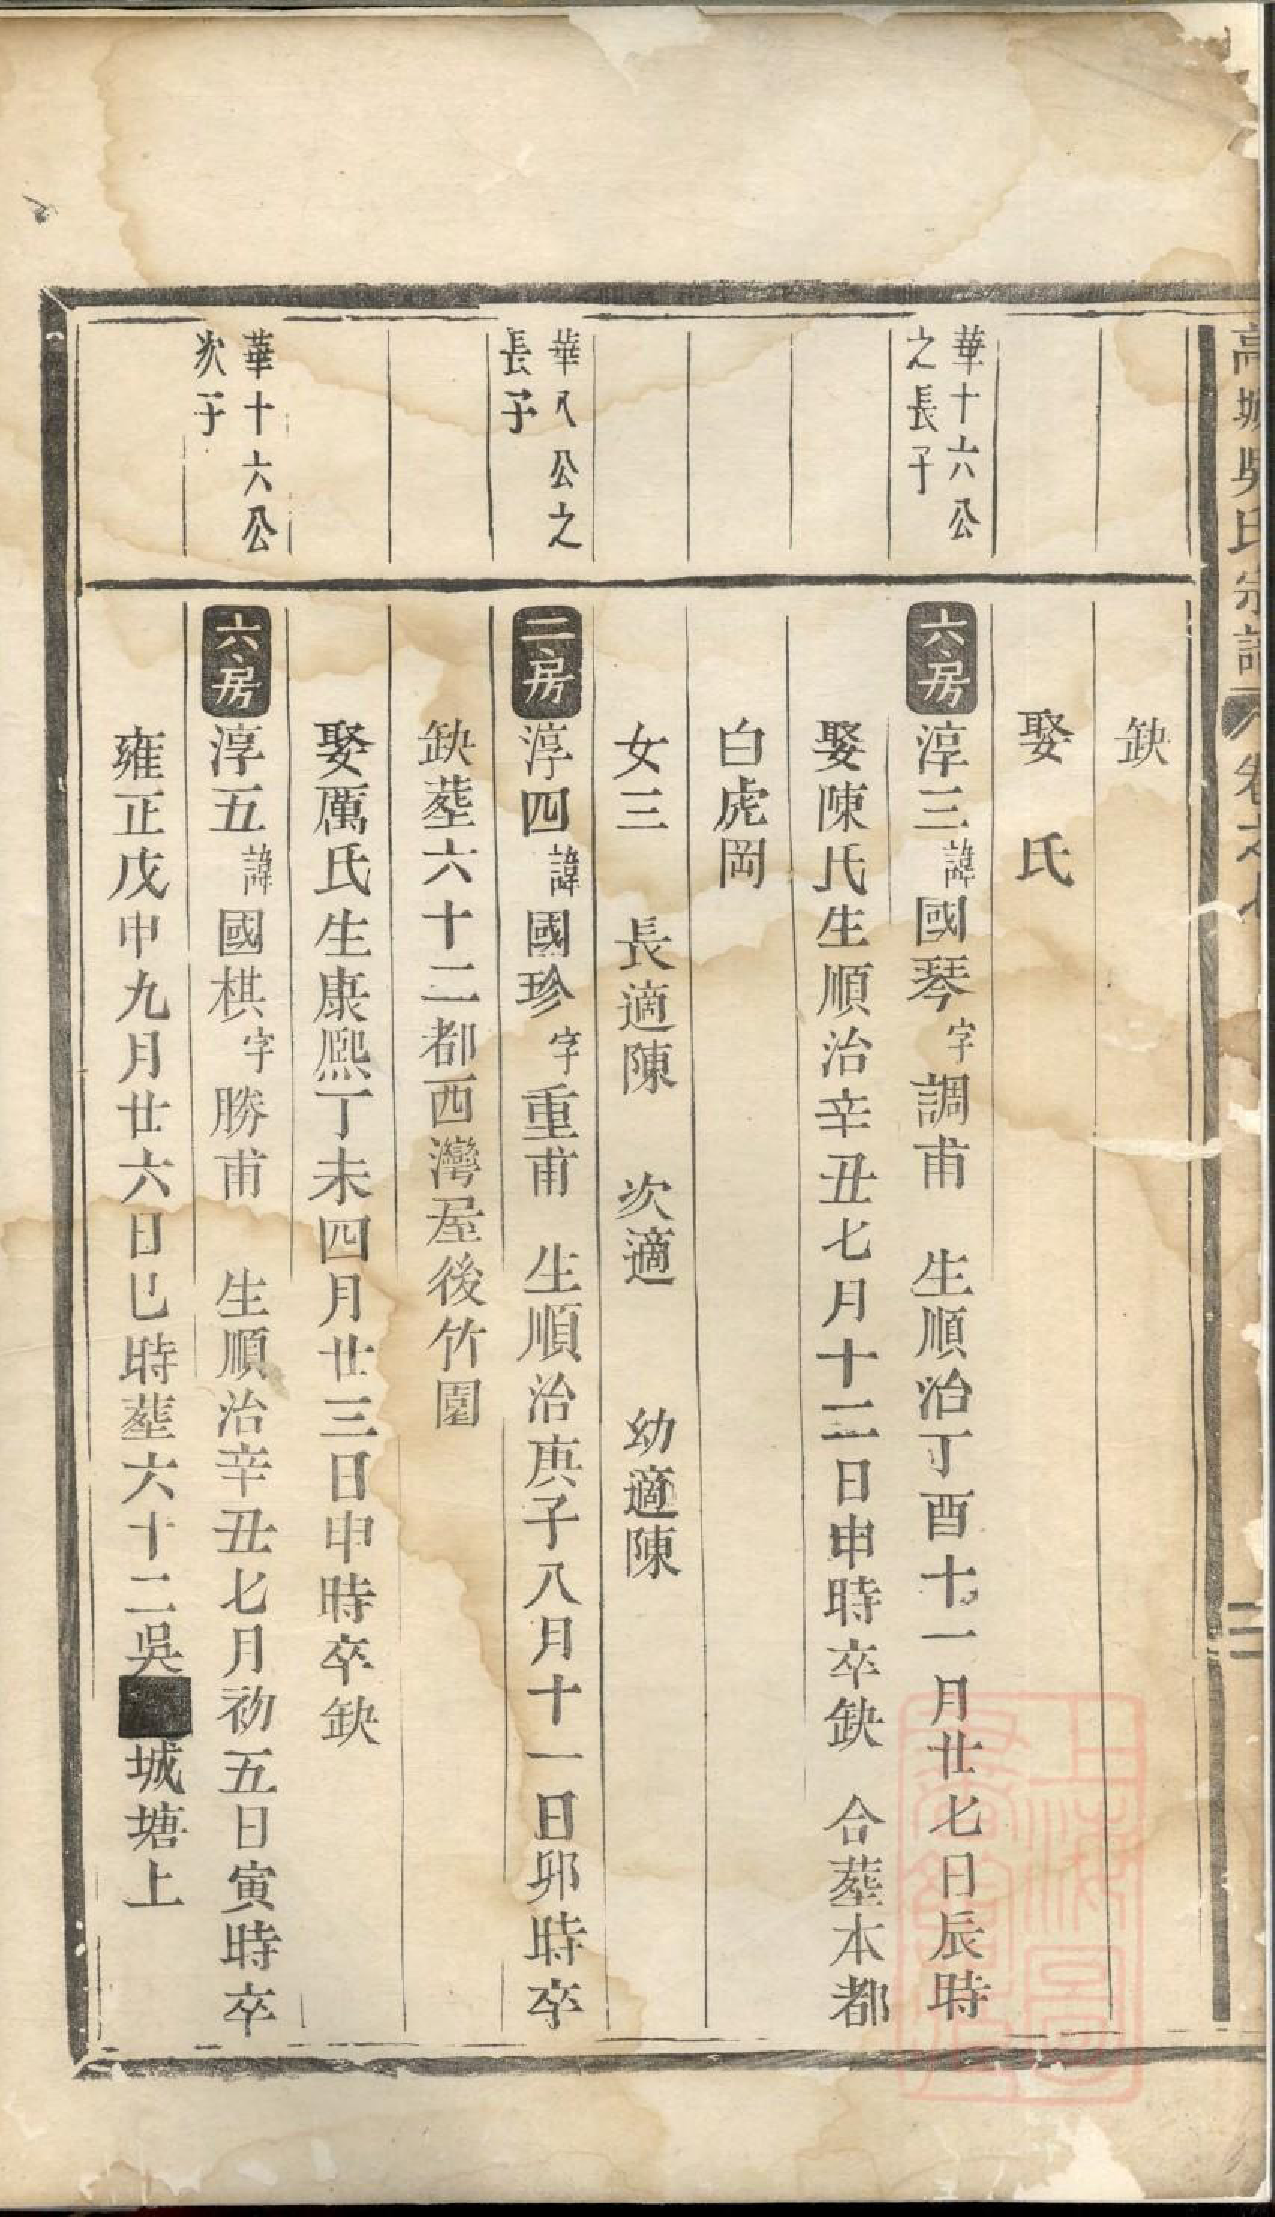 高城吳氏宗譜 卷之
二
缺
娶 氏
華十六公
之長子
六房 淳三 諱國琴 字調甫 生順治丁酉十一月廿七日辰時
娶陳氏生順治辛丑七月十二日申時卒缺 合塟本都
白虎岡
女三 長適陳 次適 幼適陳
華八公之
長子
二房 淳四 諱國珍 字重甫 生順治庚子八月十一日卯時卒
缺塟六十二都西灣屋後竹園
娶厲氏生康熙丁未四月廿三日申時卒缺
華十六公
次子
六房 淳五 諱國棋 字勝甫 生順治辛丑七月初五日寅時卒
雍正戊申九月廿六日巳時塟六十二吳■城塘上
上海圖書館藏